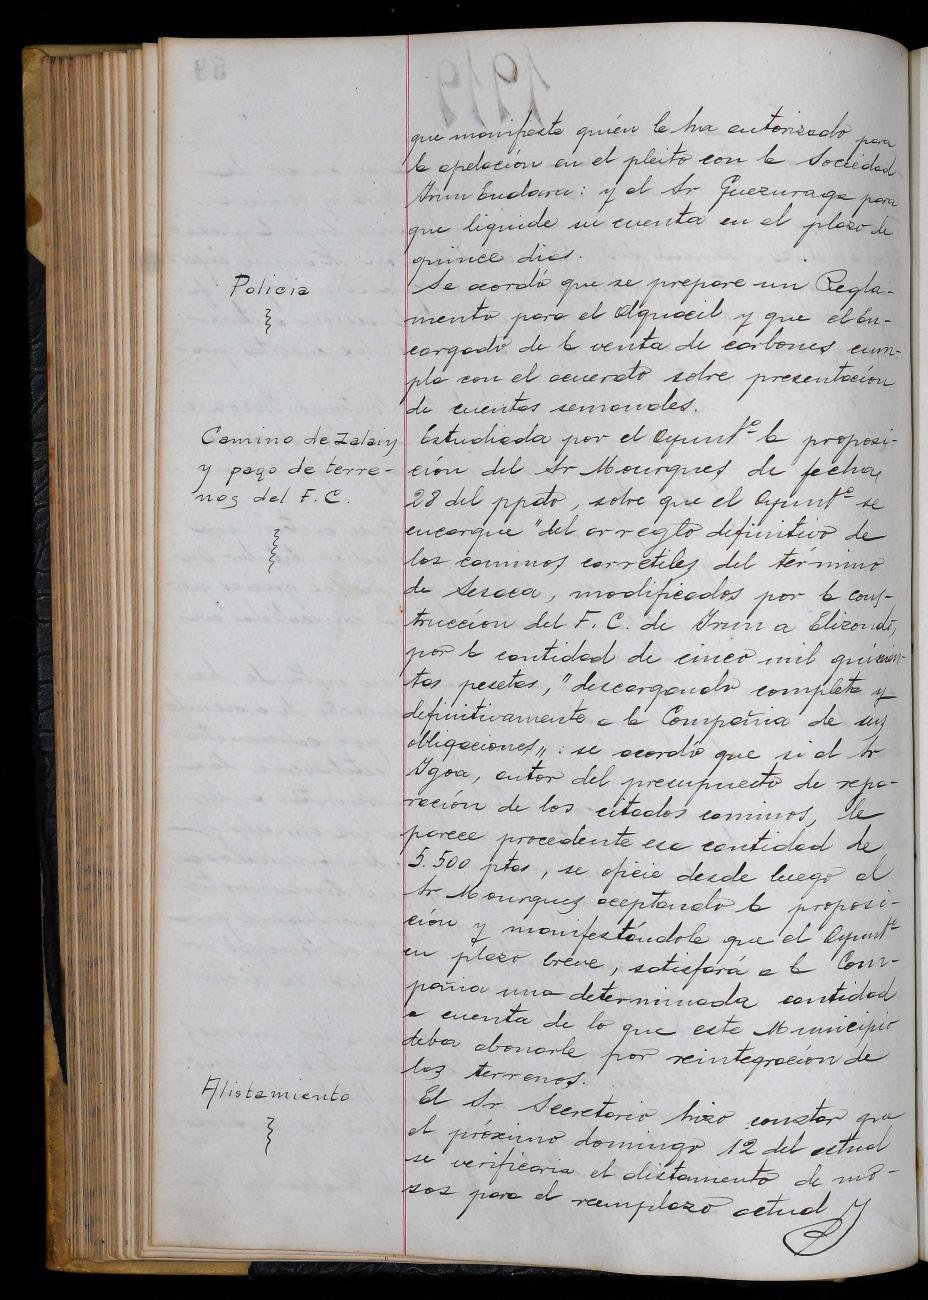 que manifieste quién le ha autorizado para
la apelación en el pleito con la Sociedad
Irun Endara: y al Sr Guezuraga para
que liquide su cuenta en el plazo de
quince dias.
Policia
Se acordó que se prepare un Regla-
mento para el Alguacil y que el En-
cargado de la venta de carbones cum-
pla con el acuerdo sobre presentación
de cuentas semanales.
Camino de Zalain
y pago de terre-
nos del F. C.
Estudiada por el Ayuntº la proposi-
ción del Sr Mourgues de fecha
28 del ppdo, sobre que el Ayuntº se
encargue "del arreglo definitivo de
los caminos carretiles del término
de Lesaca, modificados por la cons-
trucción del F. C. de Irun a Elizondo,
por la cantidad de cinco mil quinien-
tas pesetas, "descargando completa y
definitivamente a la Compañia de sus
obligaciones„: se acordó que si al Sr
Igoa, autor del presupuesto de repa-
ración de los citados caminos, le
parece procedente esa cantidad de
5.500 ptas, se oficie desde luego al
Sr Mourgues aceptando la proposi-
ción y manifestándole que el Ayuntº
en plazo breve, satisfará a la Com-
pañia una determinada cantidad
a cuenta de lo que este Municipio
deba abonarle por reintegración de
los terrenos.
Alistamiento
El Sr Secretario hizo constar que
el próximo domingo 12 del actual
se verificaria el alistamiento de mo-
zos para el reemplazo actual y